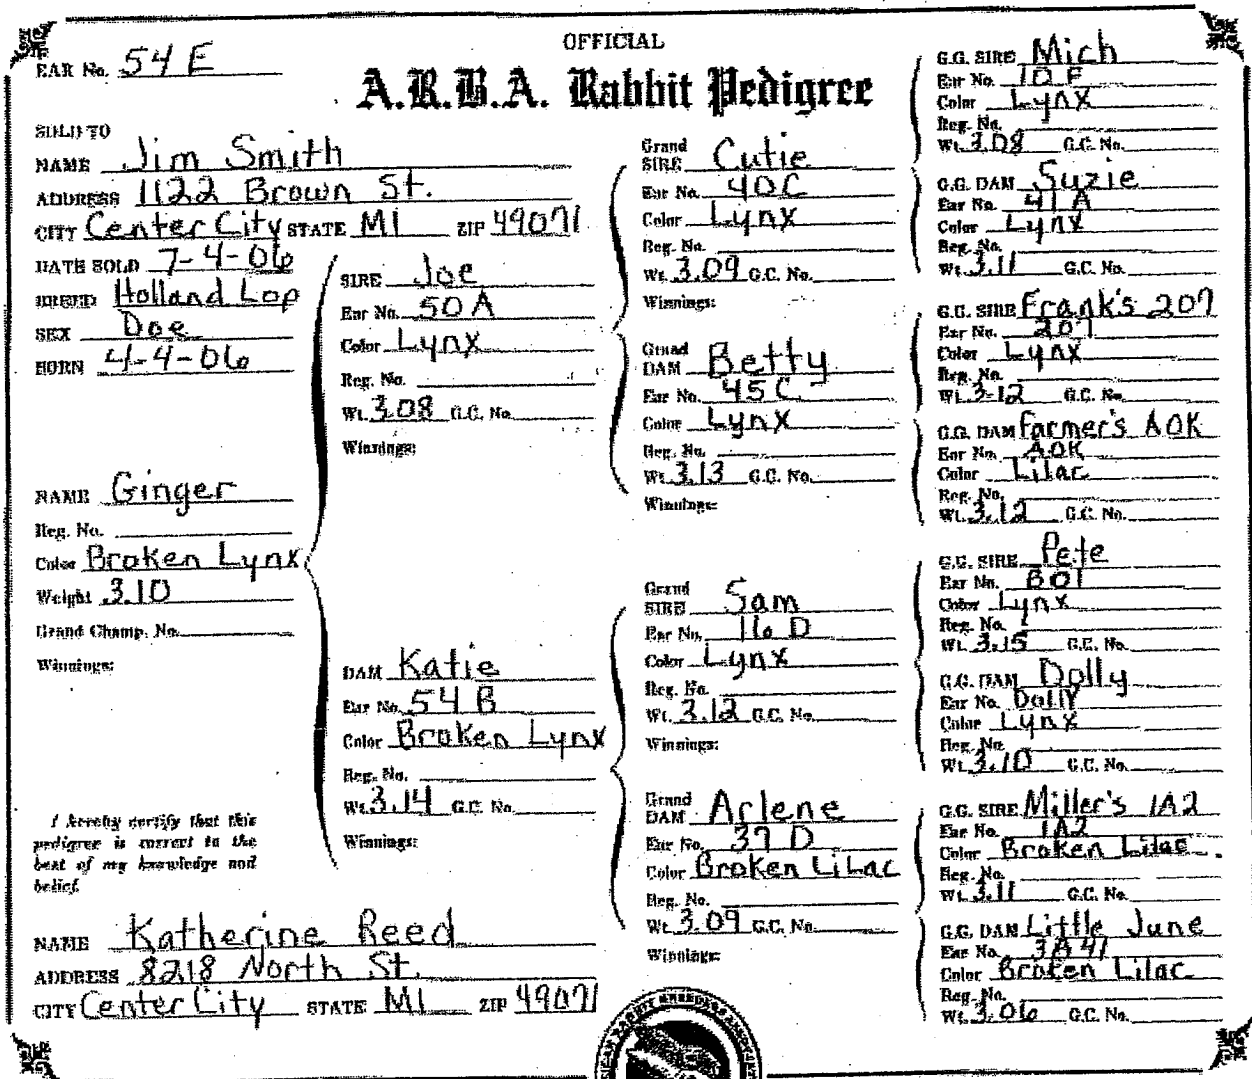 OFFICIAL
A.R.B.A. Rabbit Pedigree
EAR No. 54 E
SOLD TO
NAME Jim Smith
ADDRESS 1122 Brown St.
CITY Center City STATE MI ZIP 49071
DATE SOLD 7-4-06
BREED Holland Lop
SEX Doe
BORN 4-4-06
NAME Ginger
Reg. No.
Color Broken Lynx
Weight 3.10
Grand Champ. No.
Winnings:
I hereby certify that this
pedigree is correct to the
best of my knowledge and
belief.
NAME Katherine Reed
ADDRESS 8218 North St.
CITY Center City STATE MI ZIP 49071
SIRE Joe
Ear No. 50 A
Color Lynx
Reg. No.
Wt. 3.08 G.C. No.
Winnings:
DAM Katie
Ear No. 54 B
Color Broken Lynx
Reg. No.
Wt. 3.14 G.C. No.
Winnings:
Grand
SIRE Cutie
Ear No. 40C
Color Lynx
Reg. No.
Wt. 3.09 G.C. No.
Winnings:
Grand
DAM Betty
Ear No. 45 C
Color Lynx
Reg. No.
Wt. 3.13 G.C. No.
Winnings:
Grand
SIRE Sam
Ear No. 16 D
Color Lynx
Reg. No.
Wt. 3.12 G.C. No.
Winnings:
Grand
DAM Arlene
Ear No. 37 D
Color Broken LiLac
Reg. No.
Wt. 3.09 G.C. No.
Winnings:
G.G. SIRE Mich
Ear No. 10 F
Color Lynx
Reg. No.
Wt. 3.08 G.C. No.
G.G. DAM Suzie
Ear No. 41 A
Color Lynx
Reg. No.
Wt. 3.11 G.C. No.
G.G. SIRE Frank's 207
Ear No. 207
Color Lynx
Reg. No.
Wt. 3-12 G.C. No.
G.G. DAM Farmer's AOK
Ear No. AOK
Color Lilac
Reg. No.
Wt. 3.12 G.C. No.
G.G. SIRE Pete
Ear No. BO1
Color Lynx
Reg. No.
Wt. 3.15 G.C. No.
G.G. DAM Dolly
Ear No. Dolly
Color Lynx
Reg. No.
Wt. 3.10 G.C. No.
G.G. SIRE Miller's 1A2
Ear No. 1A2
Color Broken Lilac
Reg. No.
Wt. 3.11 G.C. No.
G.G. DAM Little June
Ear No.
Color Broken Lilac
Reg. No.
Wt. 3.06 G.C. No.
RABBIT BREEDERS